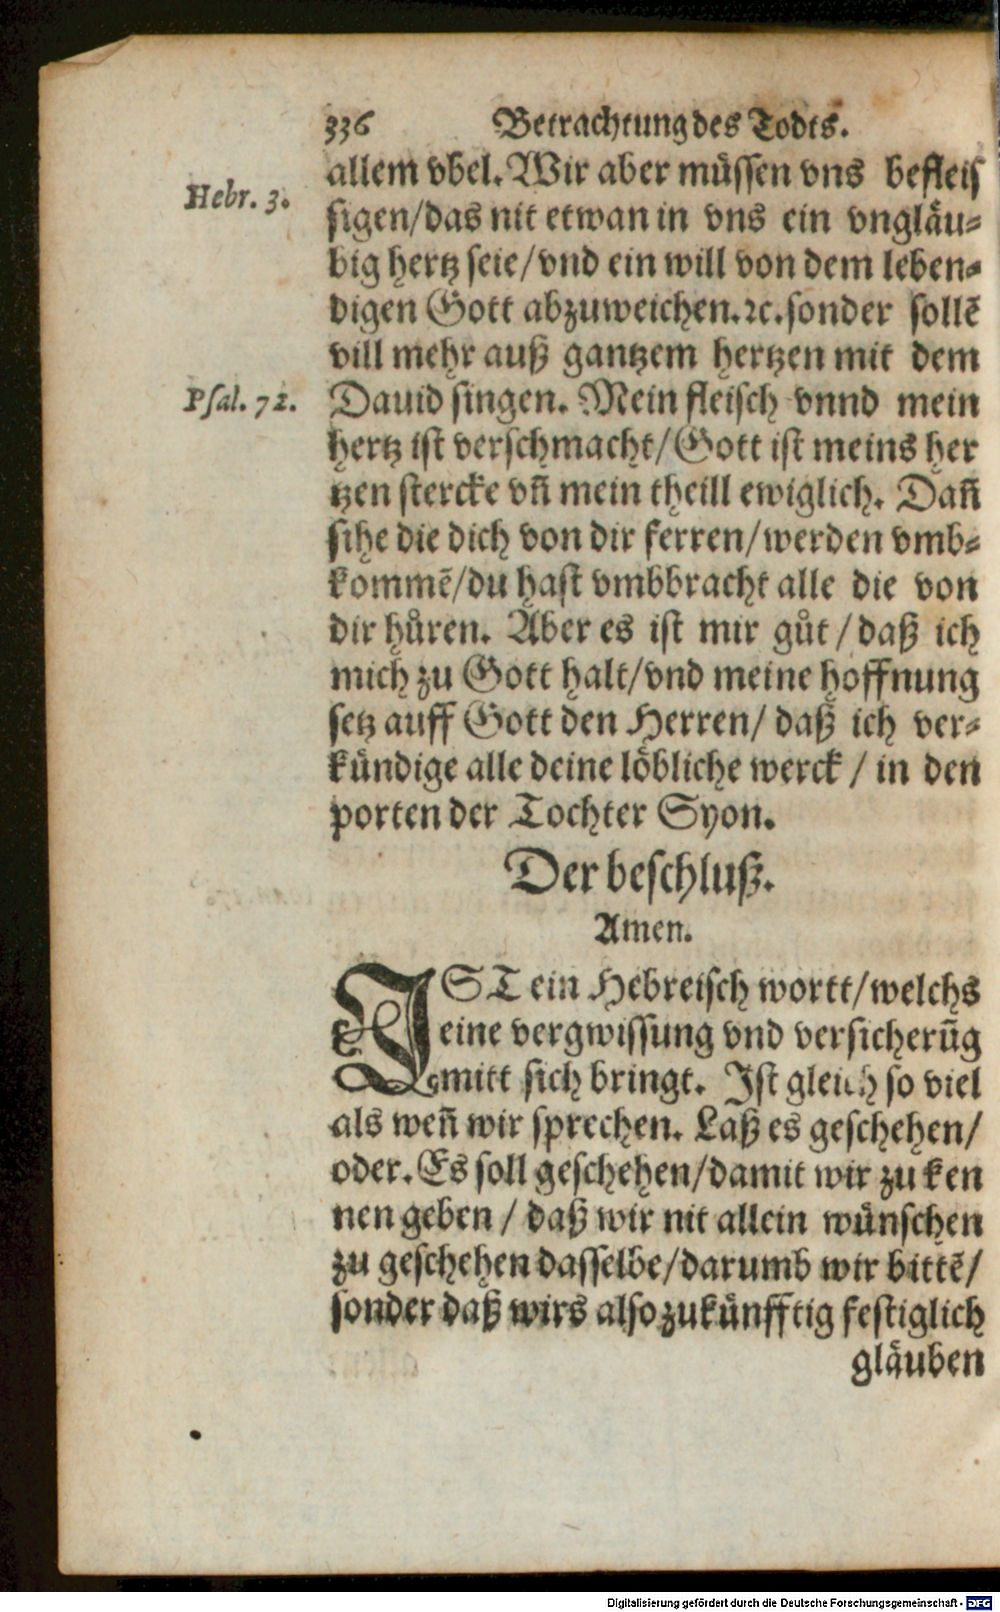 336 Betrachtung des Todts.
allem vbel. Wir aber müssen vns befleis
Hebr. 3.
sigen/das nit etwan in vns ein vngläu-
big hertz seie/vnd ein will von dem leben-
digen Gott abzuweichen.ꝛc.sonder sollẽ
vill mehr auß gantzem hertzen mit dem
Psal. 72.
Dauid singen. Mein fleisch vnnd mein
hertz ist verschmacht/Gott ist meins her
tzen stercke vñ mein theill ewiglich. Dañ
sihe die dich von dir ferren/werden vmb-
kommẽ/du hast vmbbracht alle die von
dir hůren. Aber es ist mir gůt/daß ich
mich zu Gott halt/vnd meine hoffnung
setz auff Gott den Herren/ daß ich ver-
kündige alle deine löbliche werck / in den
porten der Tochter Syon.
Der beschluß.
Amen.
IST ein Hebreisch wortt/welchs
eine vergwissung vnd versicherũg
mitt sich bringt. Ist gleich so viel
als weñ wir sprechen. Laß es geschehen/
oder. Es soll geschehen/damit wir zu ken
nen geben / daß wir nit allein wünschen
zu geschehen dasselbe/darumb wir bittẽ/
sonder daß wirs also zukünfftig festiglich
gläuben
Digitalisierung gefördert durch die Deutsche Forschungsgemeinschaft - DFG